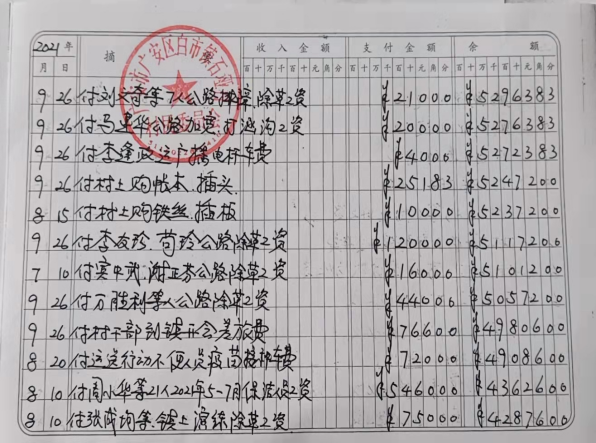 2021年 摘 要 收入金额 支付金额 余 额
月 日 百十万千百十元角分 百十万千百十元角分 百十万千百十元角分
广安区白市镇石
9 26 付刘 等7人公路排 除草工资 ¥21000 ¥5296383
9 26 付马建华公路加宽 打 沟工资 ¥20000 ¥5276383
9 26 付李逢政运广播电杆车费 ¥4000 ¥5272383
9 26 付村上购帐本.插头 ¥25183 ¥5247200
8 15 付村上购铁丝.插板 ¥10000 ¥5237200
9 26 付李友珍.苟玲公路除草工资 ¥120000 ¥5117200
7 10 付 中武.谢正芬公路除草工资 ¥16000 ¥5101200
9 26 付万胜利等人公路除草工资 ¥44000 ¥5057200
9 26 付村干部到镇开会差旅费 ¥76600 ¥4980600
8 20 付运送行动不便人员疫苗接种车费 ¥72000 ¥4908600
8 10 付周小华等21人2021年5-7月保洁员工资 ¥546000 ¥4362600
8 10 付张成均等.镇上 除草工资 ¥75000 ¥4287600